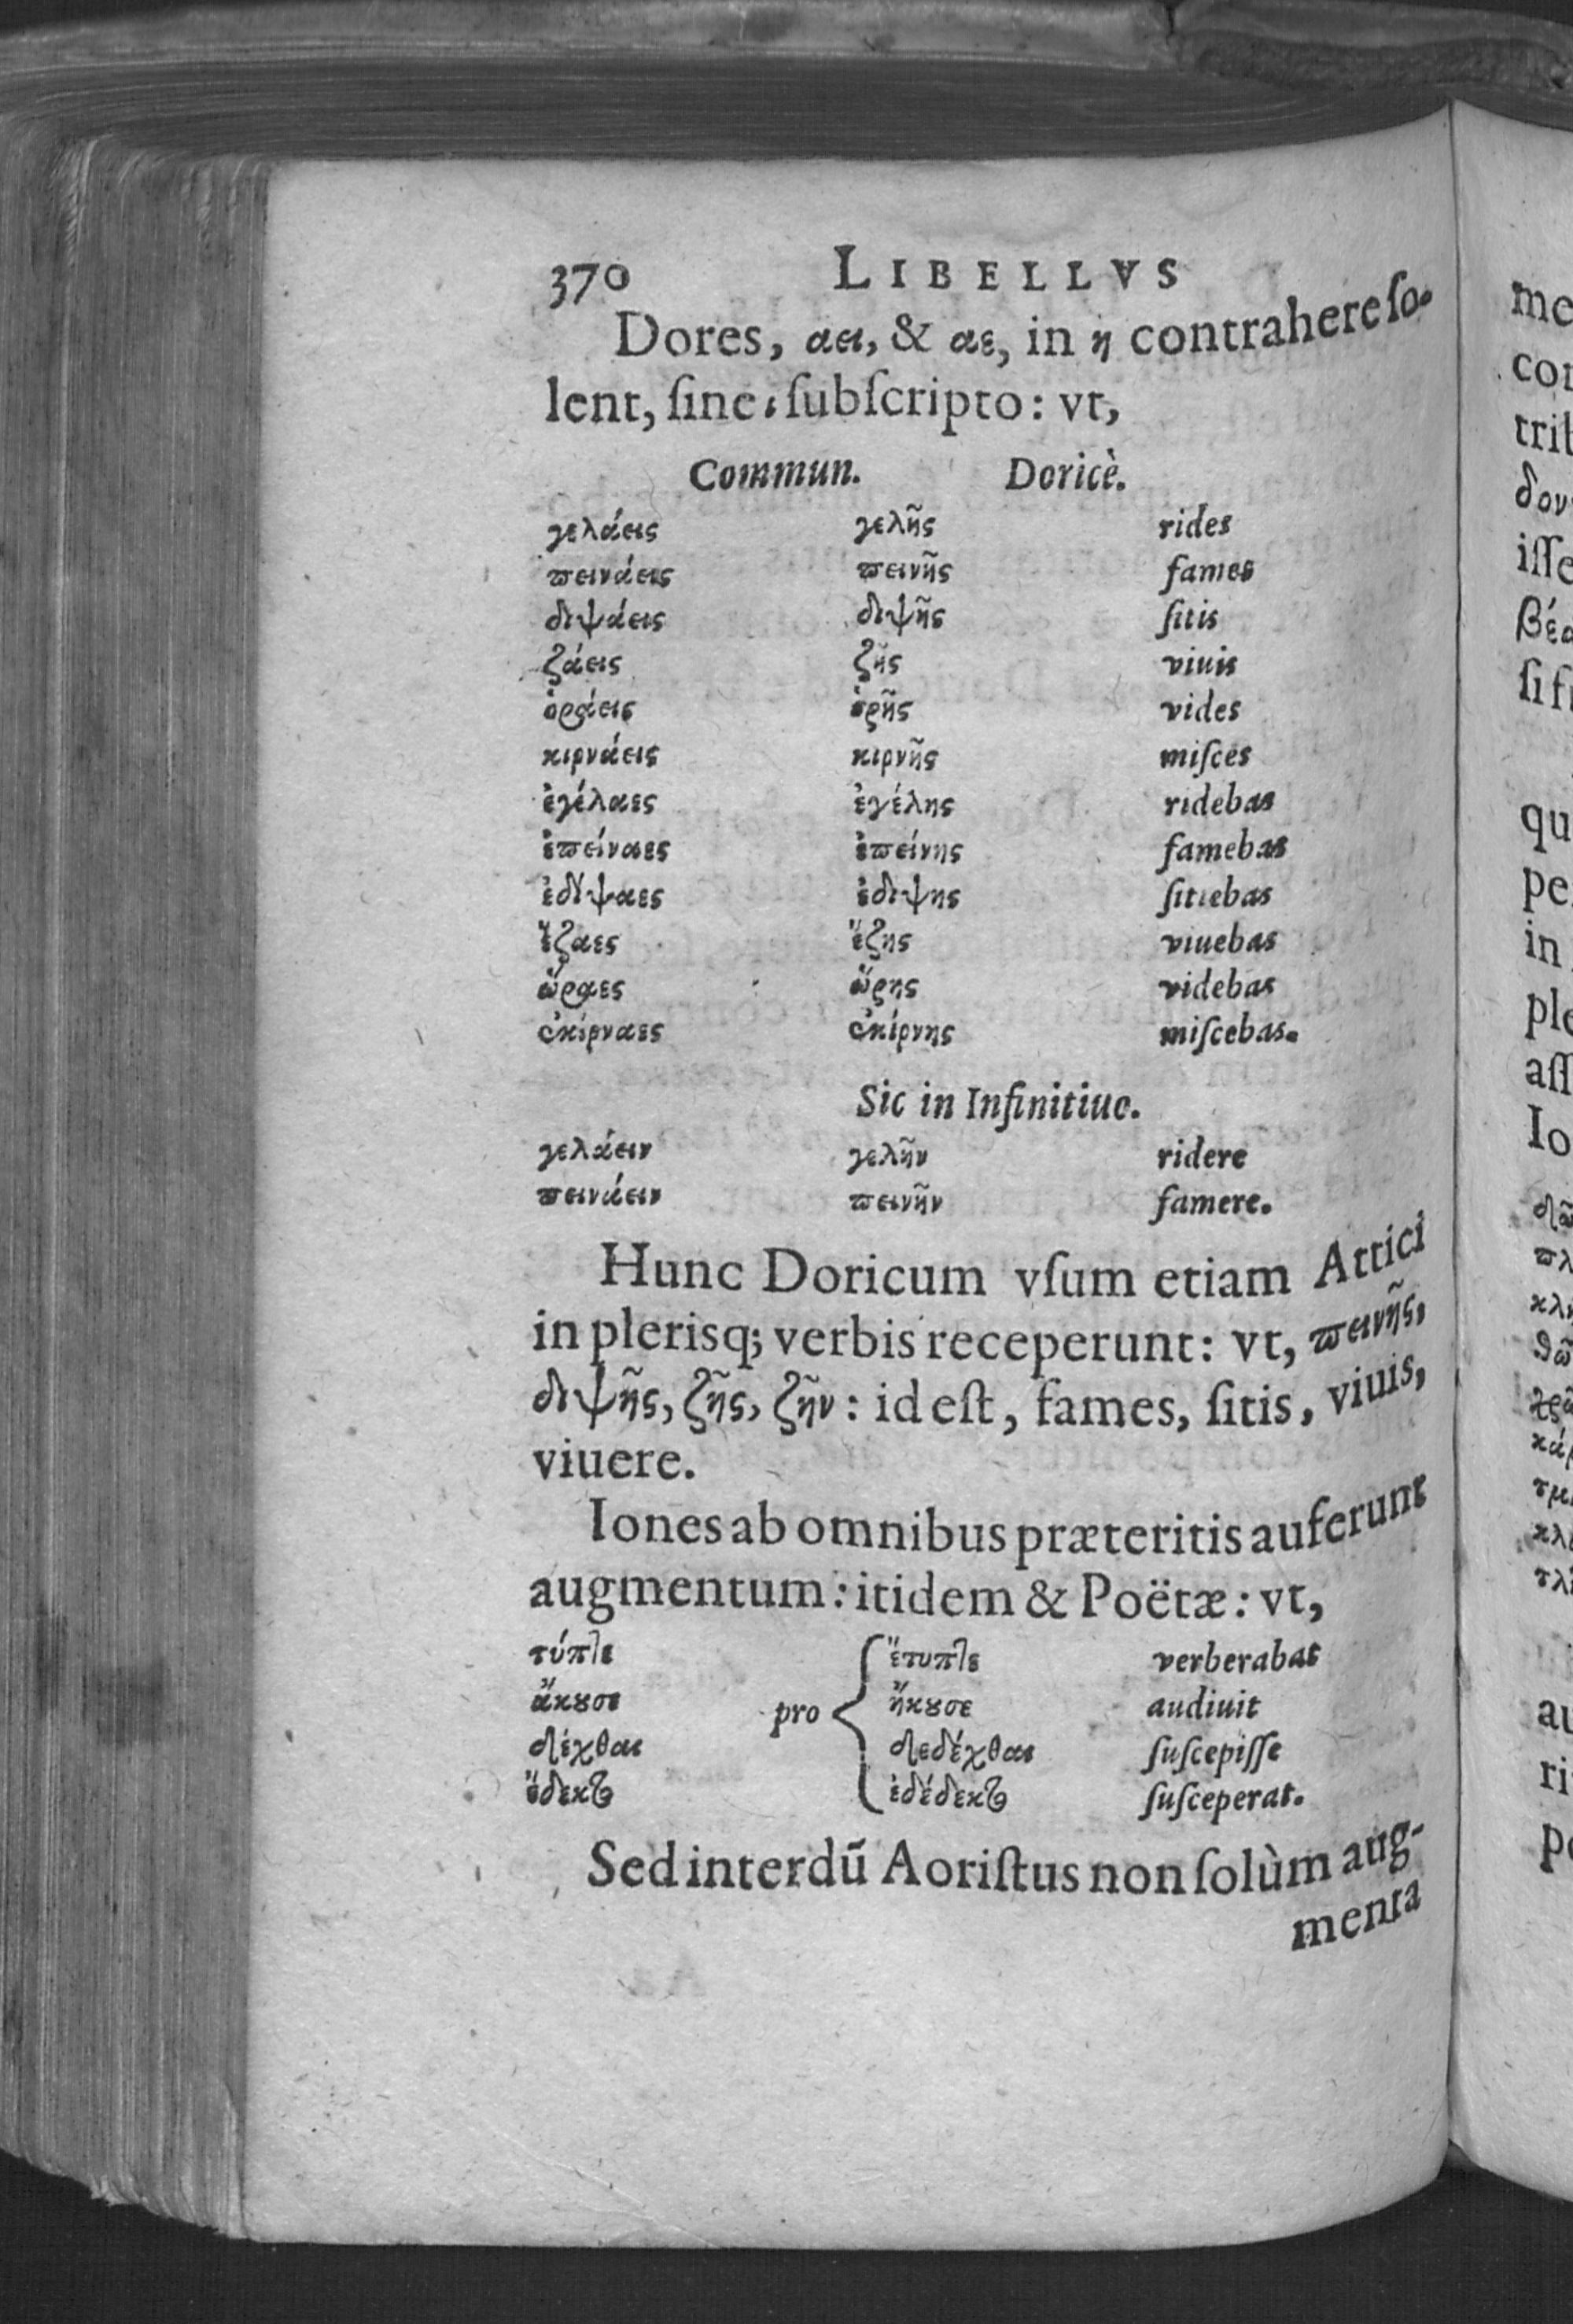 370 LIBELLVS
Dores, αει, & αε, in η contrahere ſo-
lent, ſine ι ſubſcripto: vt,
Commun. Doricè.
γελάεις γελῆς rides
πεινάεις πεινῆς fames
διψάεις διψῆς ſitis
ζάεις ζῆς viuis
ὁράεις ὁρῆς vides
κιρνάεις κιρνῆς miſces
ἐγέλαες ἐγέλης ridebas
ἐπείναες ἐπείνης famebas
ἐδίψαες ἐδιψης ſitiebas
ἔζαες ἔζης viuebas
ὥραες ὥρης videbas
ἐκίρναες ἐκίρνης miſcebas.
Sic in Infinitiuo.
γελάειν γελῆν ridere
πεινάειν πεινῆν famere.
Hunc Doricum vſum etiam Attici
in plerisq; verbis receperunt: vt, πεινῆς,
διψῆς, ζῆς, ζῆν: id eſt, fames, ſitis, viuis,
viuere.
Iones ab omnibus præteritis auferunt
augmentum: itidem & Poëtæ: vt,
τύπτε ἔτυπτε verberabat
ἄκȣσε pro ἤκȣσε audiuit
δέχθαι δεδέχθαι ſuſcepiſſe
ἔδεκτο ἐδέδεκτο ſuſceperat.
Sed interdū Aoriſtus non ſolùm aug-
menta
me
con
trib
δον
iſſe
βέα
ſi f
qu
pe
in
ple
aſſ
Io
δῶ
πλ
κλ
θῶ
κάρ
τμ
κλ
τλ
au
ri
po